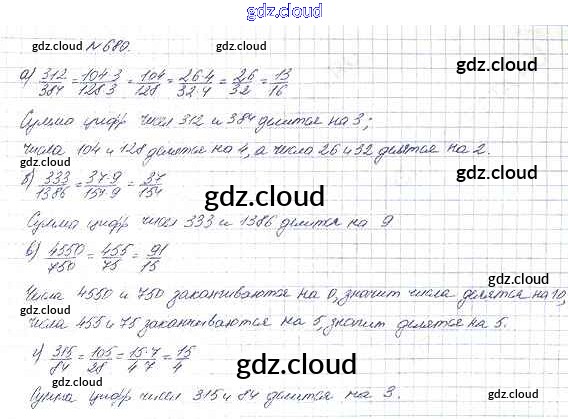 gdz.cloud
gdz.cloud №680. gdz.cloud
а) 312/384 = 104·3/128·3 = 104/128 = 26·4/32·4 = 26/32 = 13/16
gdz.cloud
Сумма цифр чисел 312 и 384 делится на 3;
Числа 104 и 128 делятся на 4, а числа 26 и 32 делятся на 2.
gdz.cloud
б) 333/1386 = 37·9/154·9 = 37/154
gdz.cloud
Сумма цифр чисел 333 и 1386 делится на 9
в) 4550/750 = 455/75 = 91/15
gdz.cloud
Числа 4550 и 750 заканчиваются на 0, значит числа делятся на 10,
gdz.cloud
числа 455 и 75 заканчиваются на 5, значит делятся на 5.
г) 315/84 = 105/28 = 15·7/4·7 = 15/4
gdz.cloud
gdz.cloud gdz.cloud
Сумма цифр чисел 315 и 84 делится на 3.